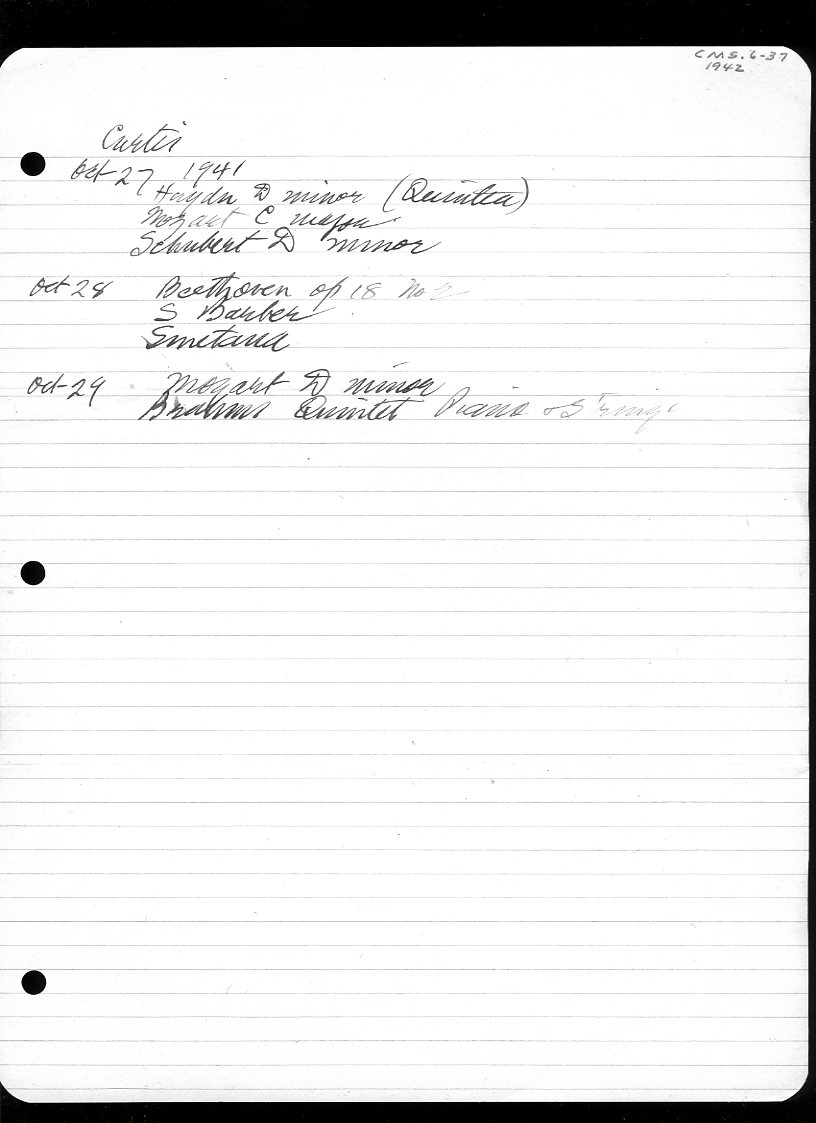 CMS. 6-37
1942
Curtis
Oct-27 1941
Haydn D minor (Quinten)
Mozart C major
Schubert D minor
Oct 28 Beethoven op 18 No 2
S Barber
Smetana
Oct-29 Mozart D minor
Brahms Quintet Piano & Strings